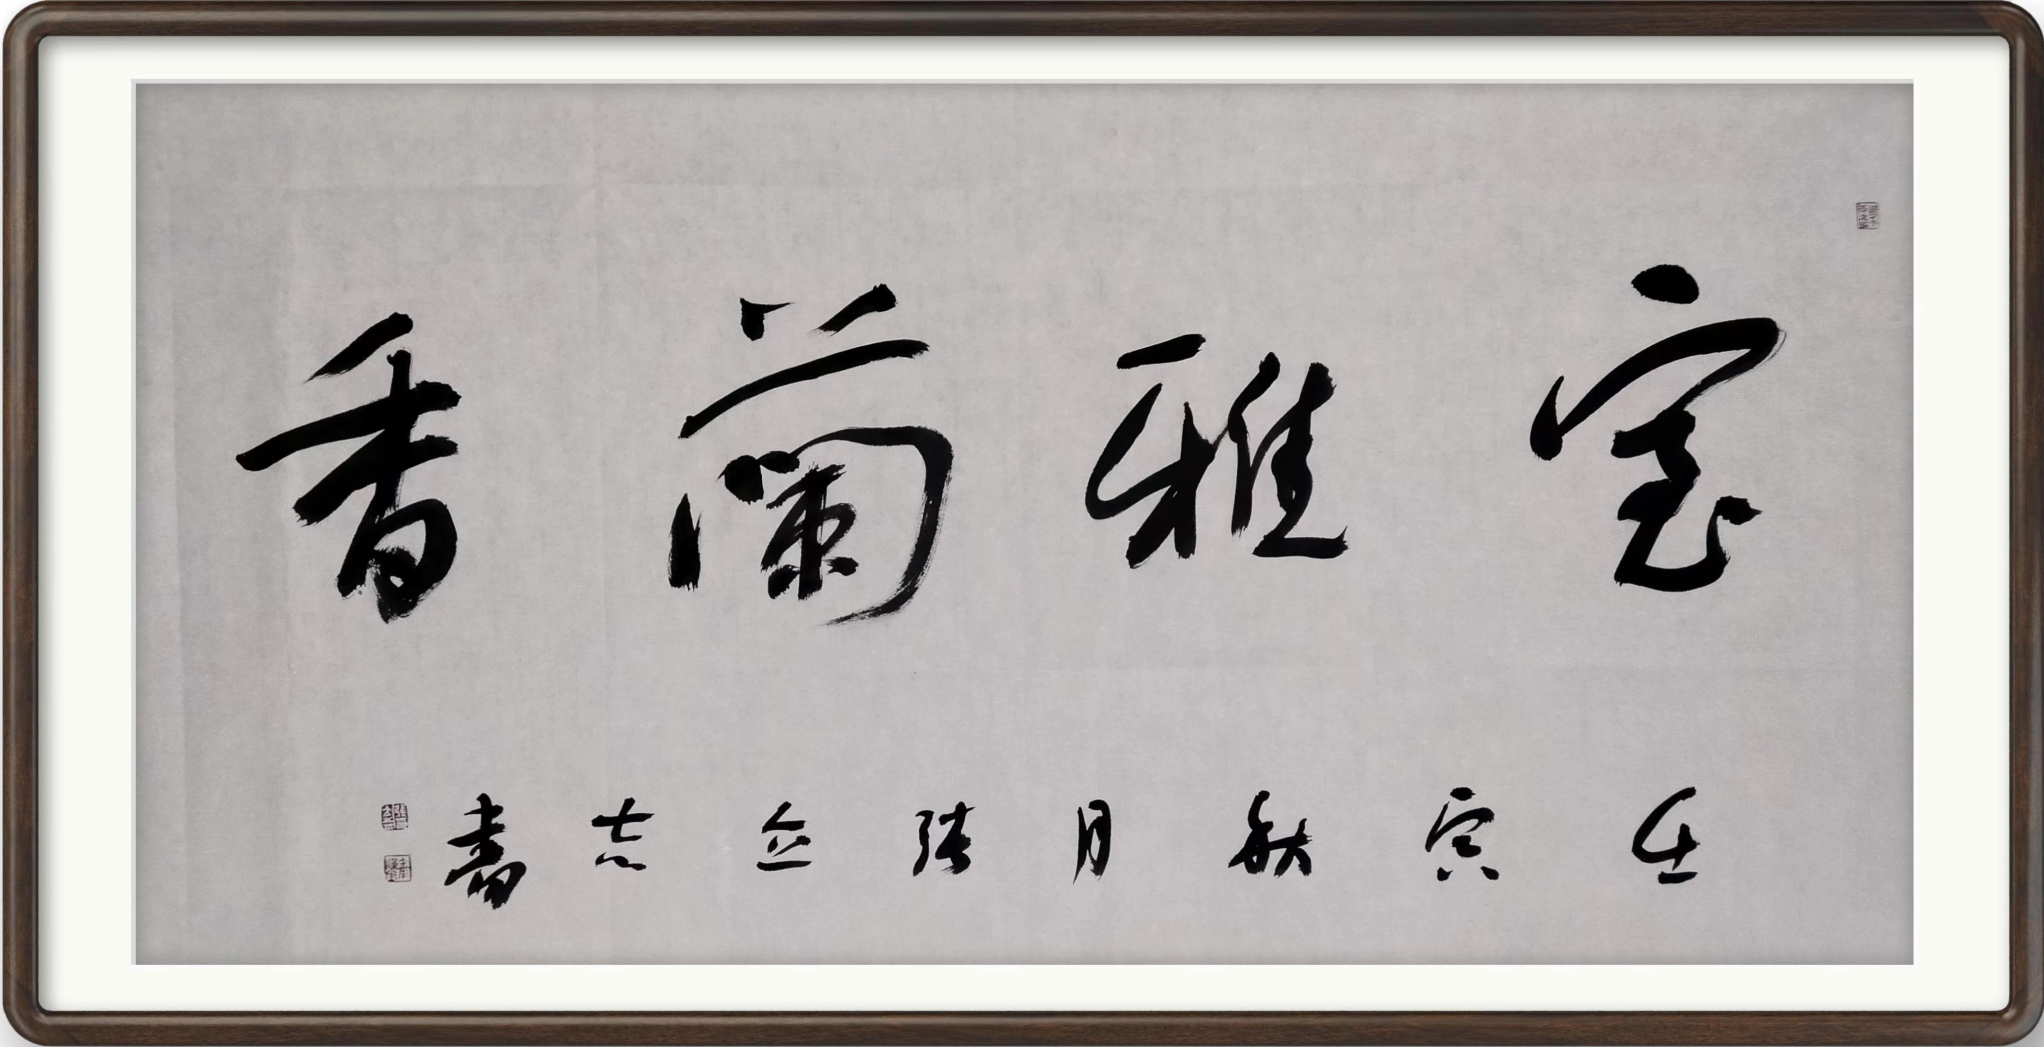 室雅蘭香
壬寅秋月張立志書